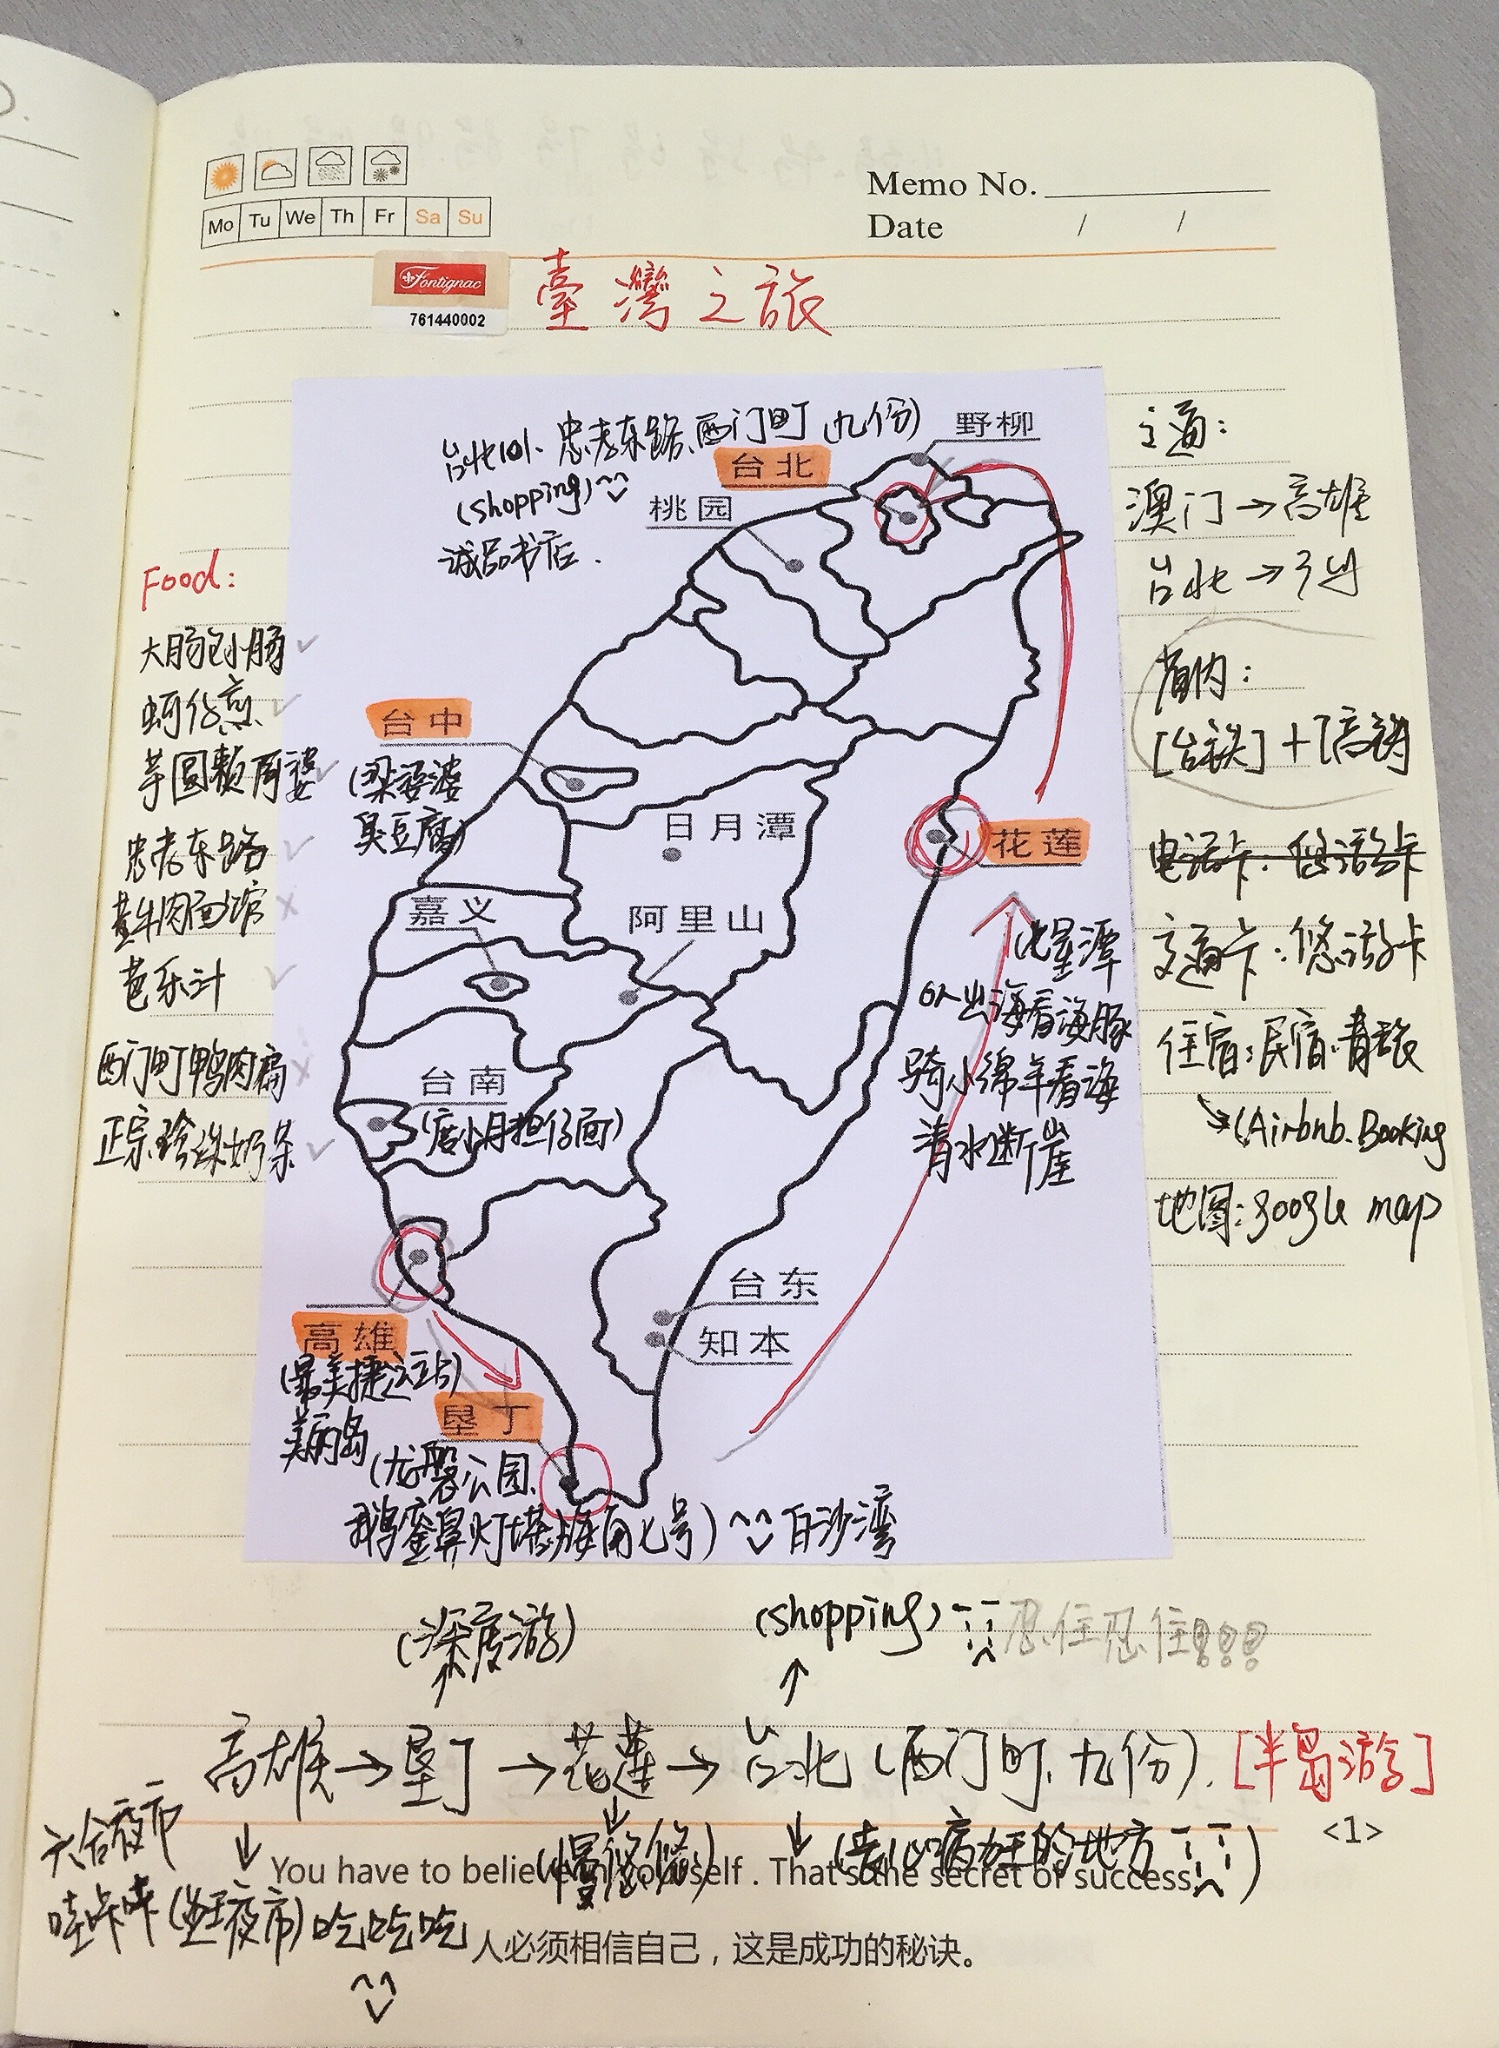 Memo No.
Mo Tu We Th Fr Sa Su
Date / /
Fontignac
761440002
臺灣之旅
台北101、忠孝东路、西门町、九份)
(shopping)
诚品书店.
野柳
台北
桃园
台中
(梁婆婆
臭豆腐)
日月潭
花莲
嘉义
阿里山
七星潭
出海看海豚
骑小绵羊看海
清水断崖
台南
(度小月担仔面)
台东
知本
高雄
(最美捷运站)
美丽岛
垦丁
(龙磐公园、
鹅銮鼻灯塔、海角七号)
白沙湾
Food:
大肠包小肠
蚵仔煎
芋圆赖阿婆
忠孝东路
牛肉面馆
芭乐汁
西门町鸭肉扁
正宗珍珠奶茶
交通:
澳门→高雄
台北→
省内:
[台铁]+[高铁
电话卡:悠游卡
交通卡:悠游卡
住宿:民宿、青旅
(Airbnb. Booking
地图:google map
(深度游)
(shopping)
忍住忍住!!!
高雄→垦丁→花莲→台北(西门町、九份). [半岛游]
<1>
六合夜市
(慢悠悠)
(丧心病狂的地方
You have to believe in yourself . That's the secret of success.
哇咔咔(夜市)吃吃吃
人必须相信自己，这是成功的秘诀。